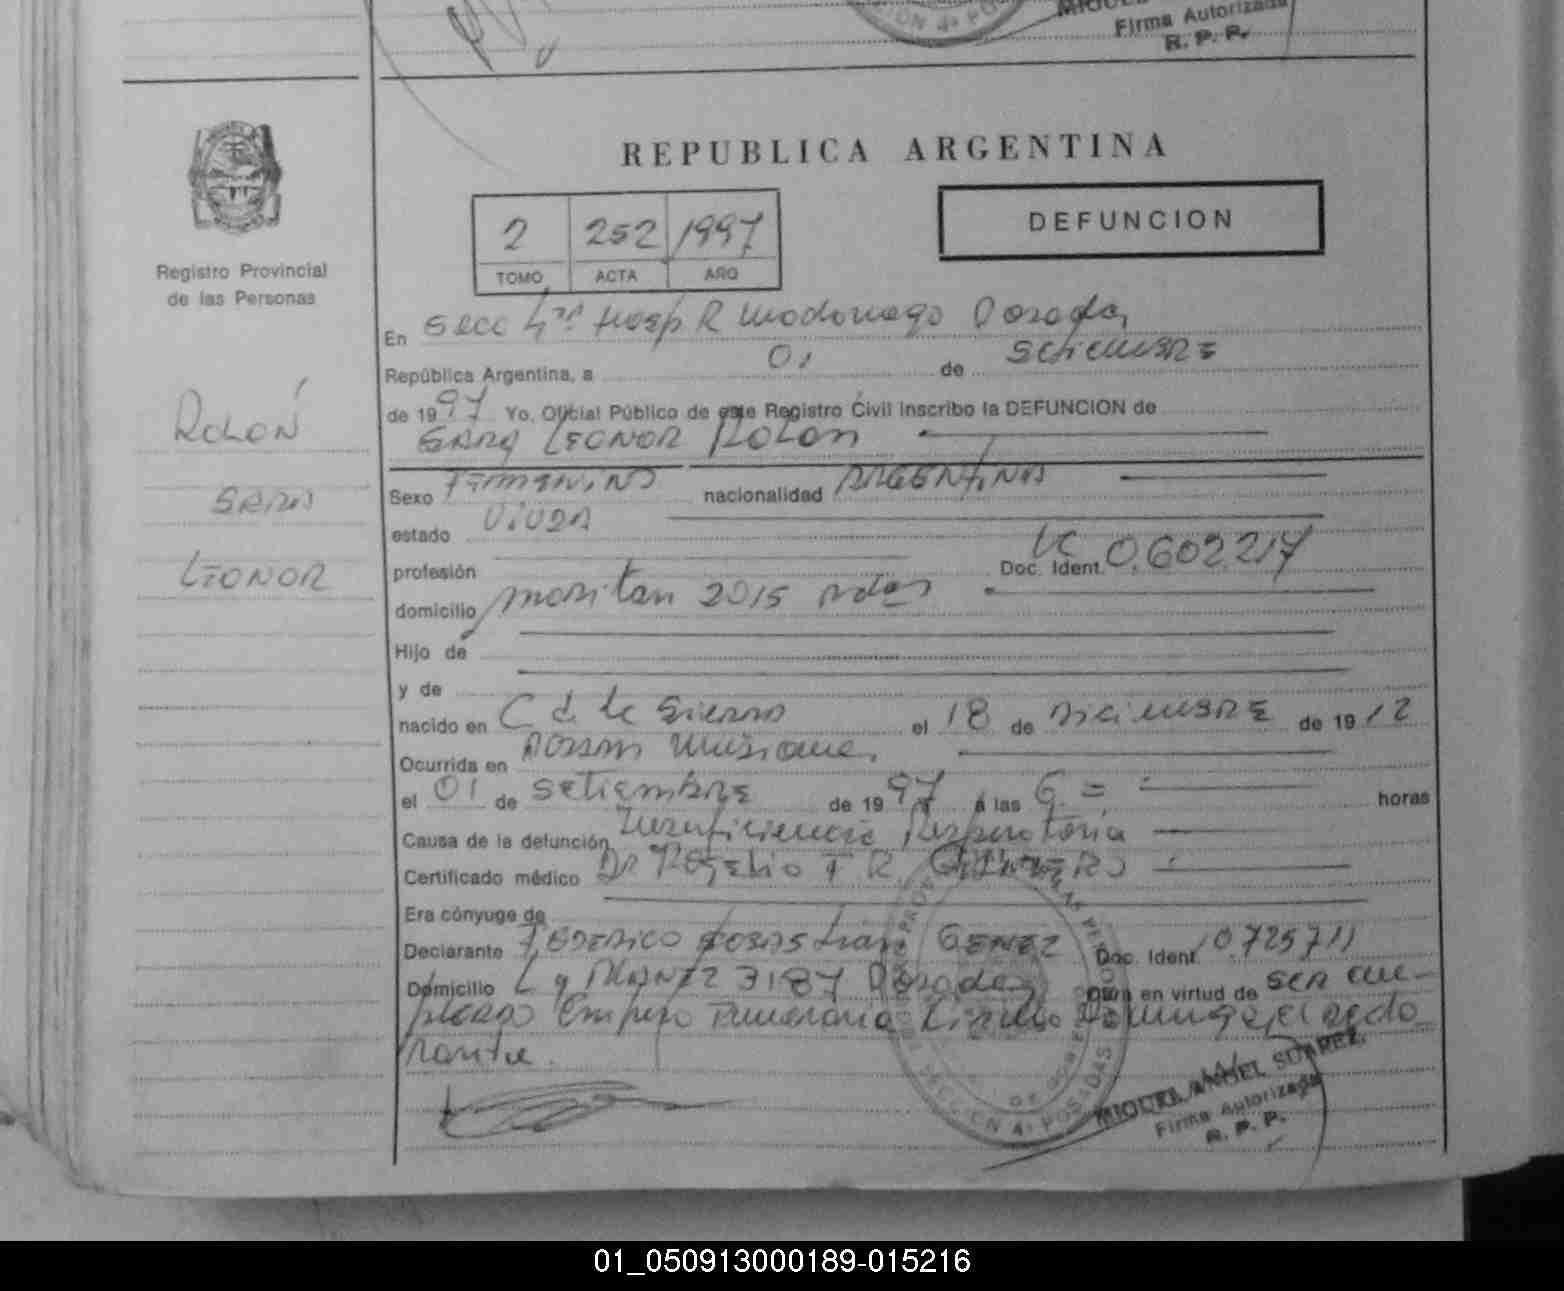 Firma Autorizada
R. P. P.
REPUBLICA ARGENTINA
DEFUNCION
2 252 1997
TOMO ACTA AÑO
Registro Provincial
de las Personas
ROLON
SARA
LEONOR
En Secc 4ta Hosp R Madariaga Posadas
República Argentina, a 01 de SETIEMBRE
de 1997 Yo, Oficial Público de este Registro Civil inscribo la DEFUNCION de
SARA LEONOR ROLON
Sexo FEMENINO nacionalidad ARGENTINA
estado VIUDA
profesión Doc. Ident. LC 0.602.217
domicilio 2015 Pdas
Hijo de
y de
nacido en C d. la Sierra el 18 de DICIEMBRE de 1912
Ocurrida en POSADAS Misiones
el 01 de SETIEMBRE de 1997 a las 6 = horas
Causa de la defunción Insuficiencia Respiratoria
Certificado médico Dr ROGELIO F R
Era cónyuge de
Declarante FEDERICO SEBASTIAN GENEZ Doc. Ident. 10.725.711
Domicilio L y PLANEZ 3187 Posadas Obra en virtud de SER EM-
PLEADO Empresa FUNERARIA el decla
rante.
SECCION 4a POSADAS
MIGUEL ANGEL SUAREZ
Firma Autorizada
R. P. P.
01_050913000189-015216